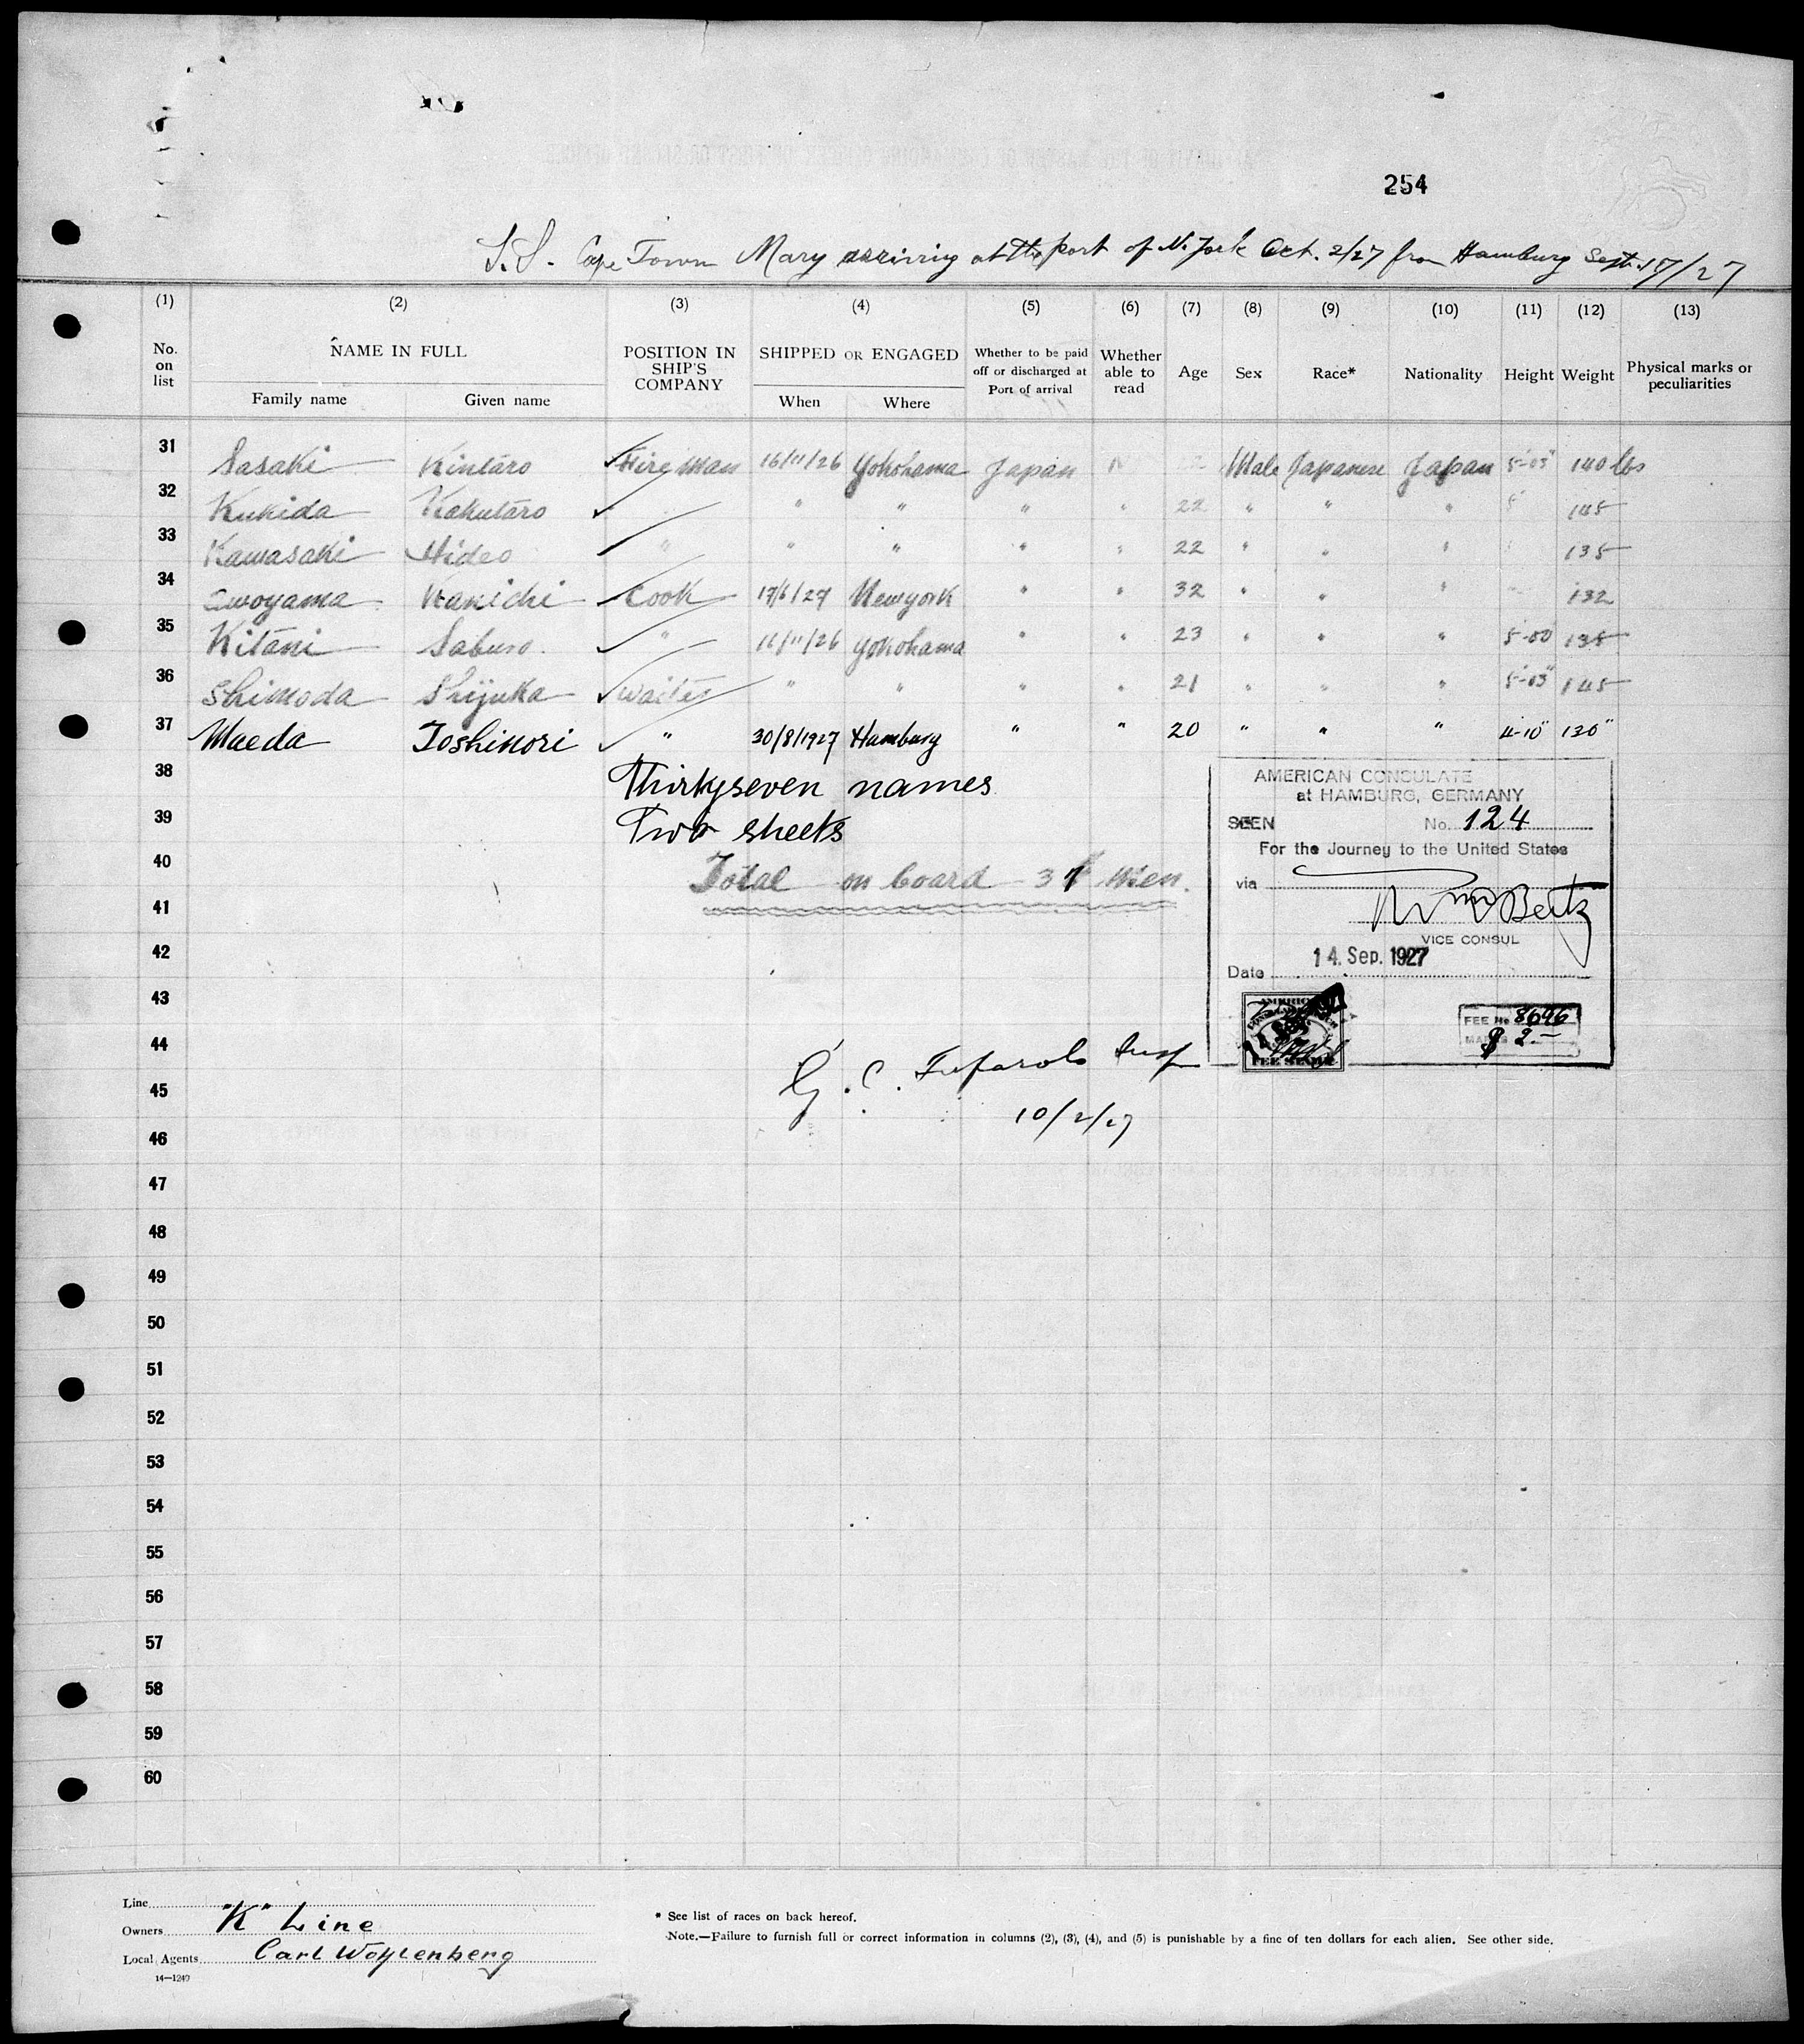 254
S.S. Cape Town Mary arriving at the port of N. York Oct. 2/27 from Hamburg Sept. 17/27
(1) (2) (3) (4) (5) (6) (7) (8) (9) (10) (11) (12) (13)
No. on list
NAME IN FULL
Family name Given name
POSITION IN SHIP'S COMPANY
SHIPPED OR ENGAGED
When Where
Whether to be paid off or discharged at Port of arrival
Whether able to read
Age Sex Race* Nationality Height Weight
Physical marks or peculiarities
31 Sasaki Kintaro Fireman 16/11/26 Yokohama Japan Male Japanese Japan 5-03" 140 lbs
32 Kukida Kakutaro " " " " 22 " " " 145
33 Kawasaki Hideo " " " " " 22 " " " 135
34 Awoyama Kanichi Cook 17/6/27 Newyork " " 32 " " " 132
35 Kitani Saburo. " 16/11/26 Yokohama " " 23 " " " 5-00 135
36 Shimoda Shijuka waiter " " " " 21 " " " 5-03" 145
37 Maeda Toshinori " 30/8/1927 Hamburg " " 20 " " " 4-10" 120"
38 Thirtyseven names
39 Two sheets
40 Total on board 37 Men.
41
42
43
44
45
46
47
48
49
50
51
52
53
54
55
56
57
58
59
60
AMERICAN CONSULATE
at HAMBURG, GERMANY
SEEN No. 124
For the Journey to the United States
via
VICE CONSUL
14. Sep. 1927
Date
FEE STAMP
FEE No 8696
$ 2.-
10/2/27
Line
Owners "K" Line
Local Agents Carl Wohlenberg
14—1240
* See list of races on back hereof.
Note.—Failure to furnish full or correct information in columns (2), (3), (4), and (5) is punishable by a fine of ten dollars for each alien. See other side.